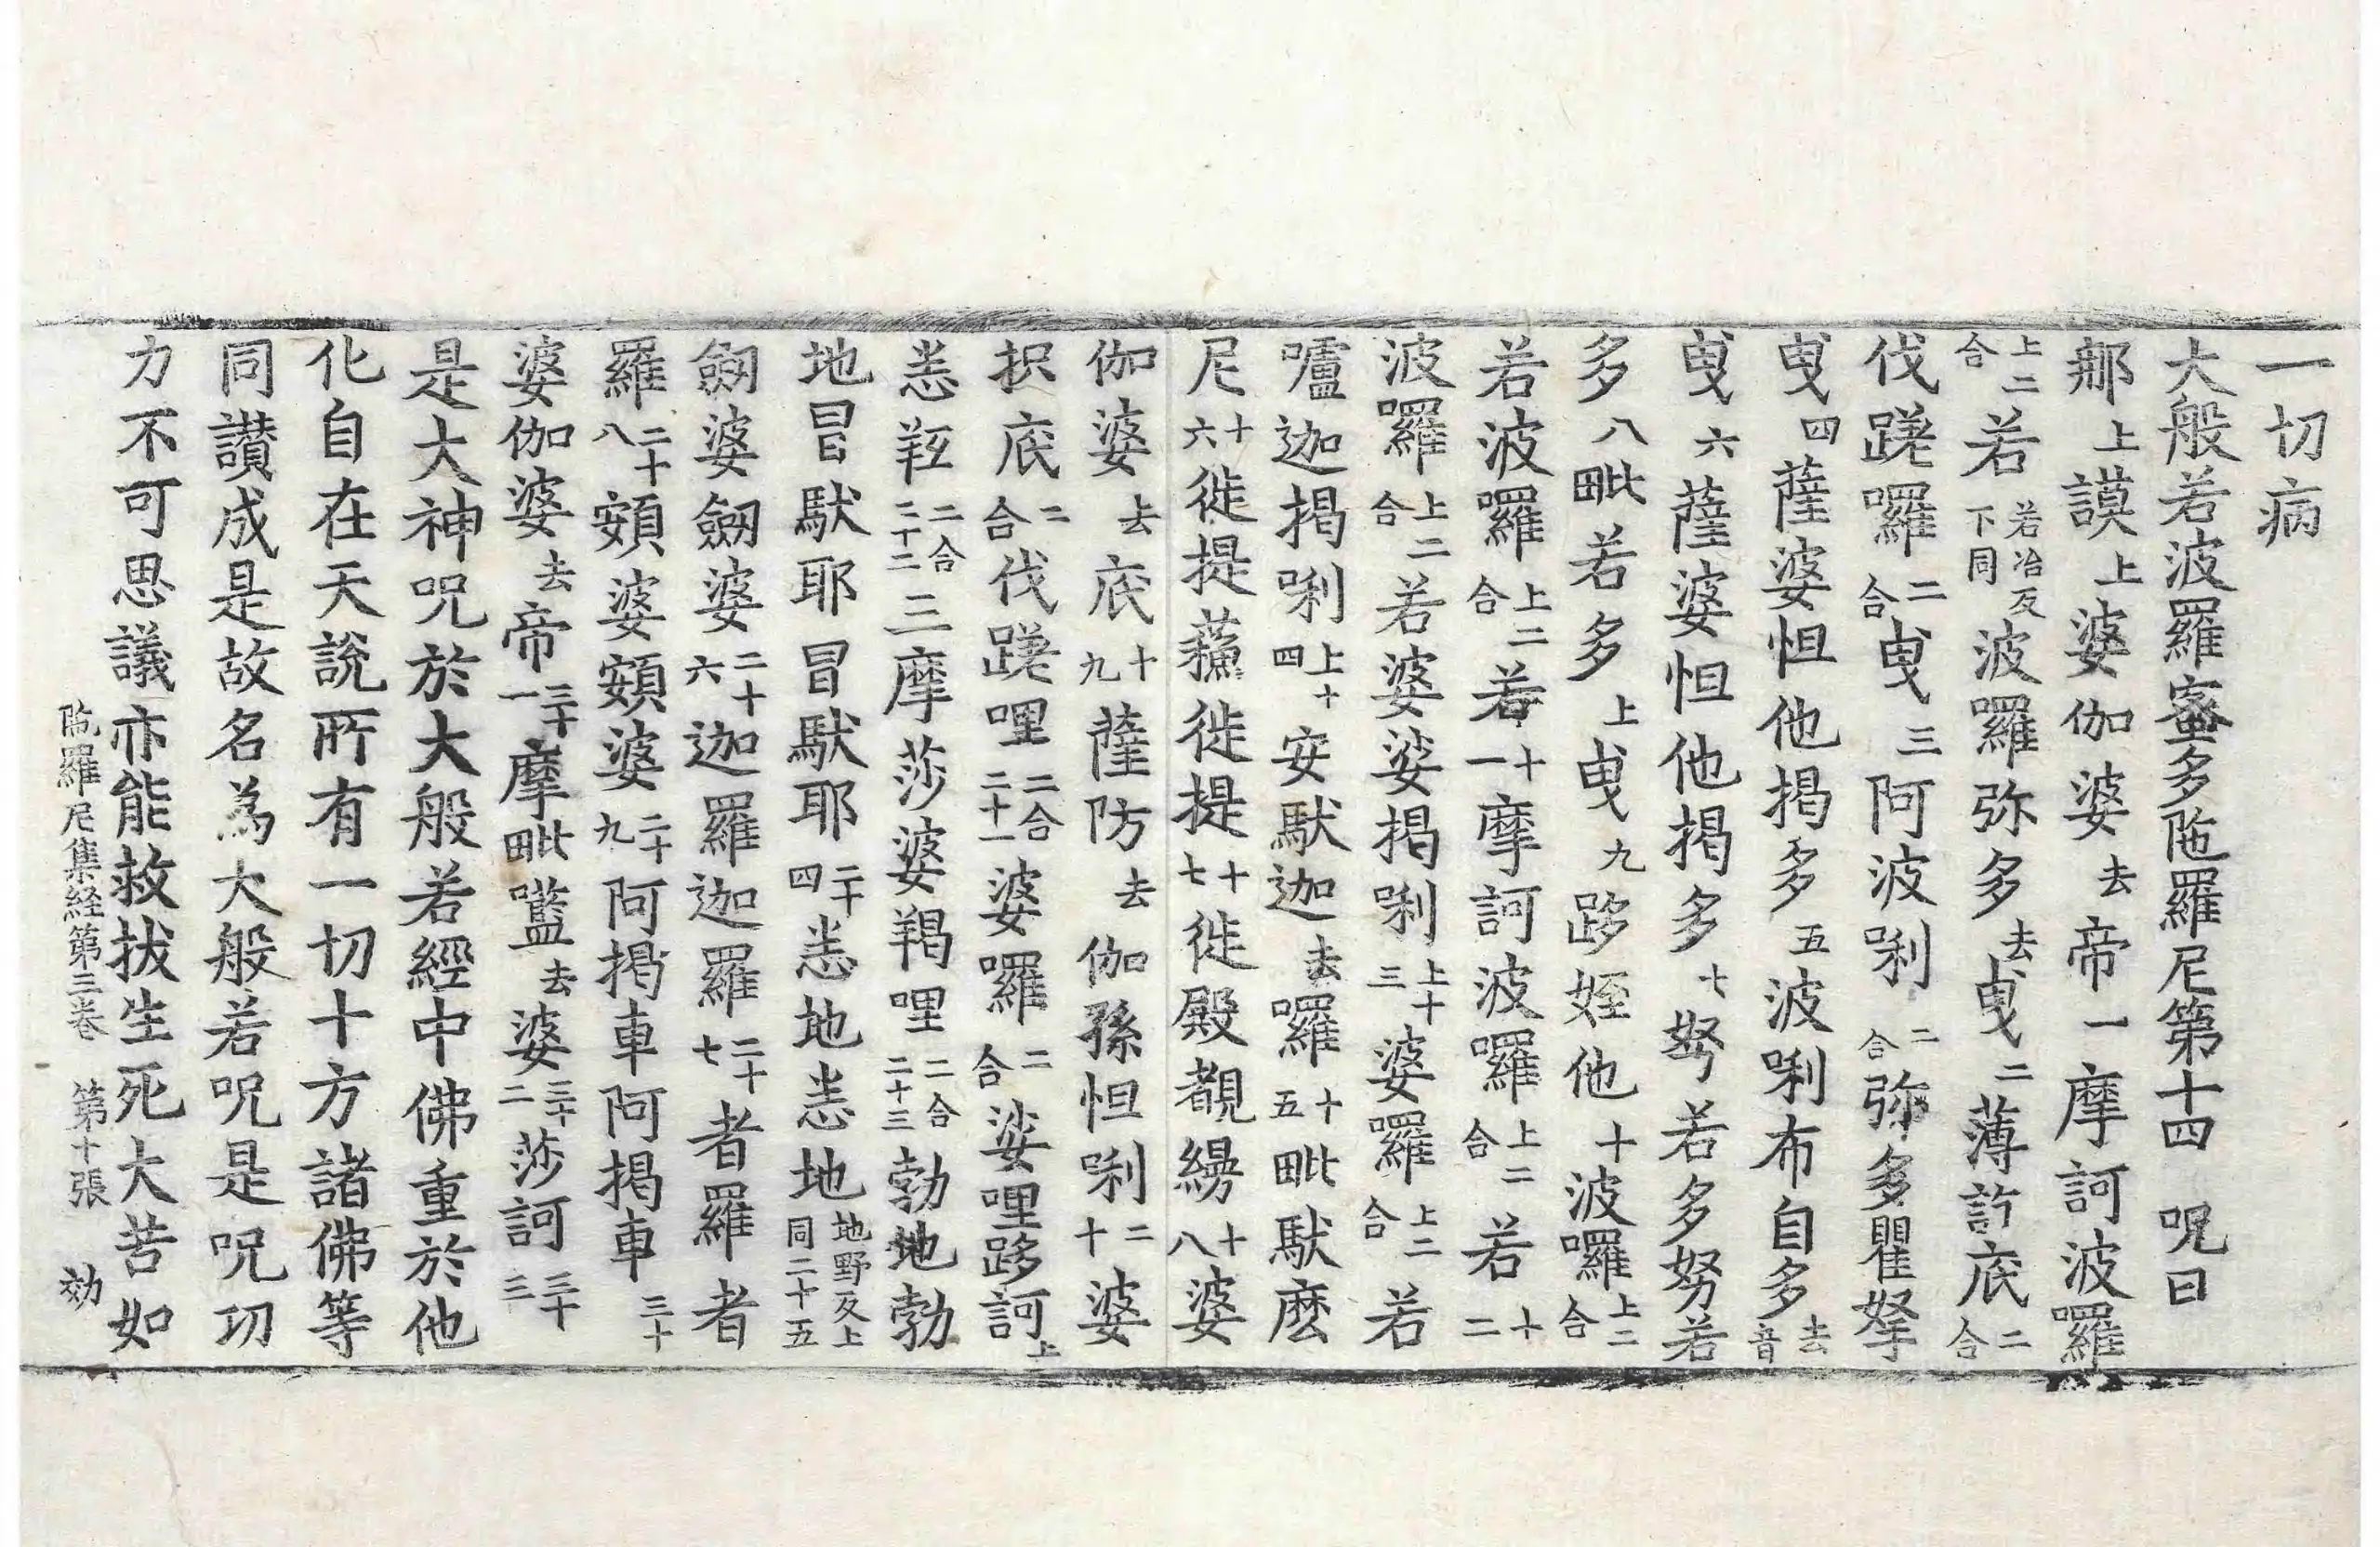 一切病
大般若波羅蜜多陁羅尼第十四　呪曰
那上謨上婆伽婆去帝一摩訶波囉
上二合若若冶反下同波囉弥多去曳二薄訖底二合
伐蹉囉二合曳三阿波唎二合弥多瞿拏
曳四薩婆怛他揭多五波唎布自多去音
曳六薩婆怛他揭多七努若多努若
多八毗若多上曳九跢姪他十波囉上二合
若波囉上二合若十一摩訶波囉上二合若十二
波囉上二合若婆娑揭唎上十三婆囉上二合若
嚧迦揭唎上十四安馱迦去囉十五毗馱麽
尼十六徙提蘓徙提十七徙殿覩縵十八婆
伽婆去底十九薩防去伽孫怛唎二十婆
抧底二合伐蹉哩二合二十一婆囉二合娑哩跢訶上
恙𦍞二合二十二三摩莎婆羯哩二合二十三勃地勃
地冒馱耶冒馱耶二十四恙地恙地地野反上同二十五
劔婆劔婆二十六迦羅迦羅二十七者羅者
羅二十八頞婆頞婆二十九阿揭車阿揭車三十
婆伽婆去帝三十一摩毗㘕去婆三十二莎訶三十三
是大神呪於大般若經中佛重於他
化自在天說所有一切十方諸佛等
同讃成是故名為大般若呪是呪功
力不可思議亦能救拔生死大苦如
陁羅尼集経第三卷　第十張　効